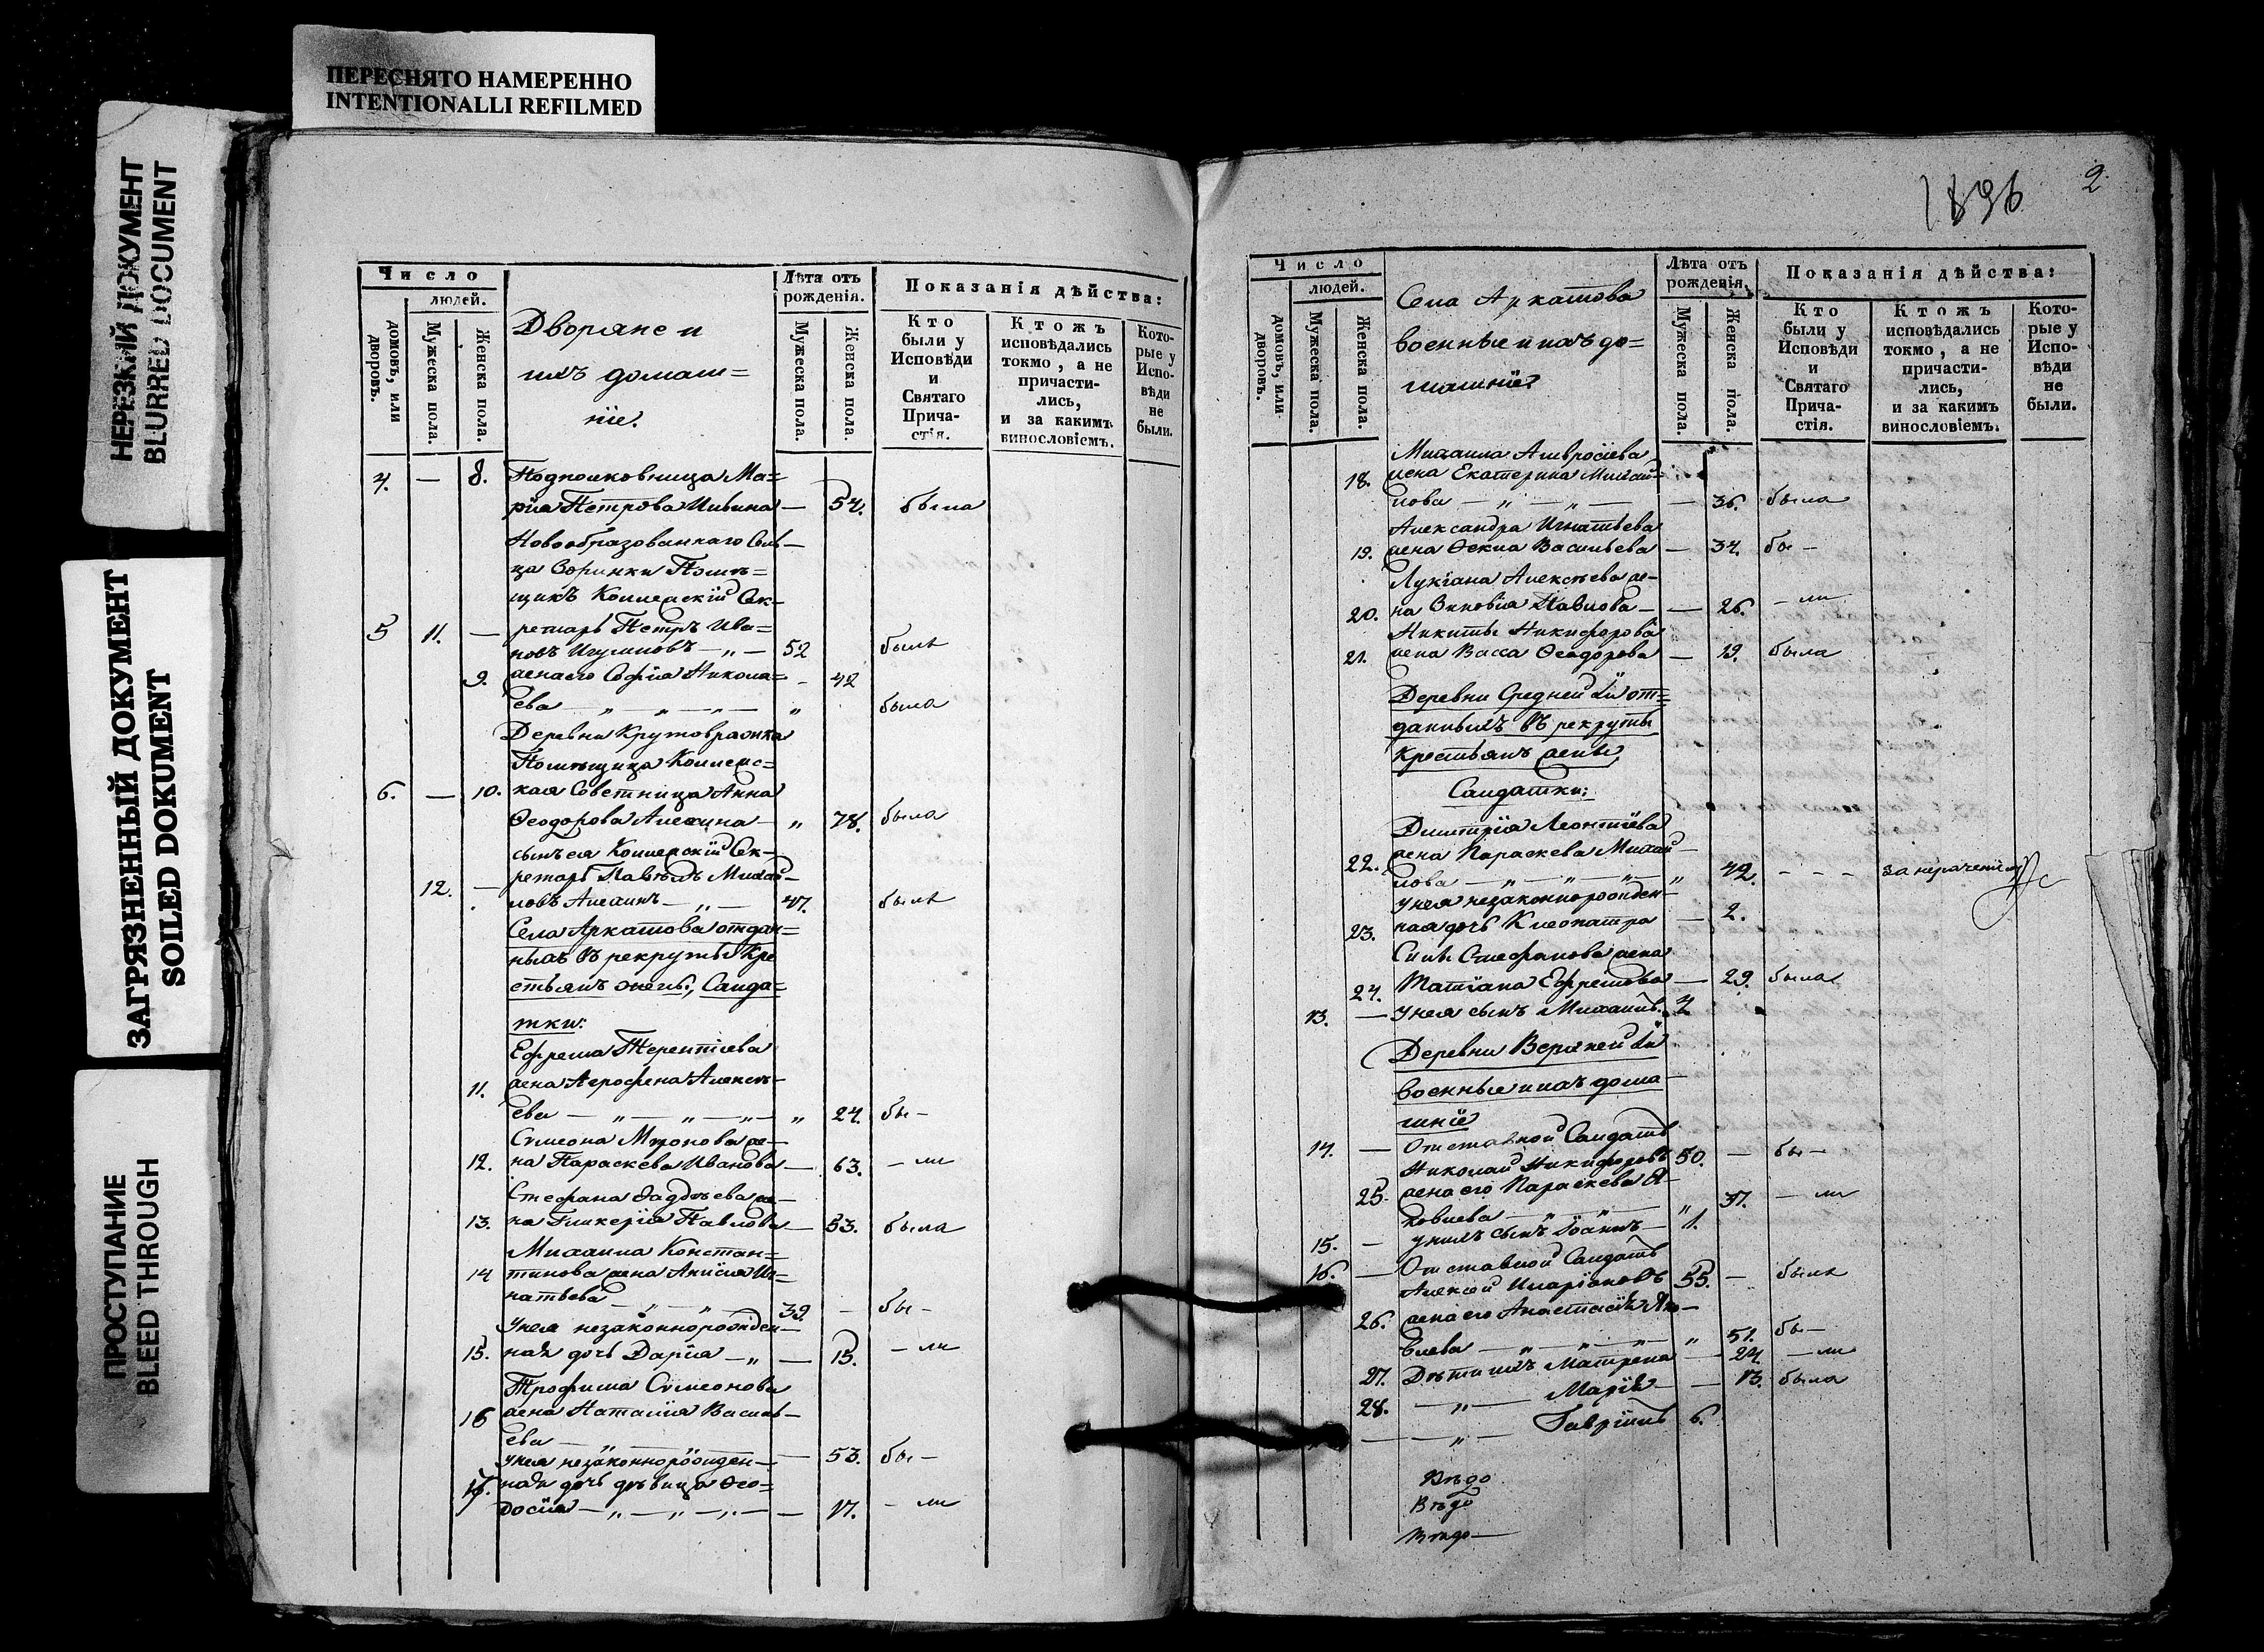 ПЕРЕСНЯТО НАМЕРЕННО
INTENTIONALLI REFILMED
НЕРЕЗКИЙ ДОКУМЕНТ
BLURRED DOCUMENT
ЗАГРЯЗНЕННЫЙ ДОКУМЕНТ
SOILED DOKUMENT
ПРОСТУПАНИЕ
BLEED THROUGH
Число
людей.
домовъ, или дворовъ.
Мужеска пола.
Женска пола.
Дворяне и
ихъ домаш=
ніе.
Лѣта отъ рожденія.
Мужеска пола.
Женска пола.
Показанія дѣйства:
Кто были у Исповѣди и Святаго Прича- стія.
Ктожъ исповѣдались токмо, а не причасти- лись, и за какимъ винословіемъ.
Кото- рые у Испо- вѣди не были.
4. — 8. Подполковница Ма=
рія Петрова — 54. была
Новообразованнаго Сель
ца Помѣ=
щикъ Коллежскій Сек-
5 11. — ретарь Петръ Ива=
новъ — „ — 52 былъ
9. жена его Софія Никола= - 42
ева — „ — „ — „ — „ была
Деревни
Помѣщица Коллежс=
6. — 10. кая Советница Анна
Ѳеодорова — „ 78. была
сынъ ея Коллежскій Сек-
12. — ретарь Павелъ Михай-
ловъ — „ — 47. былъ
Села Аркатова отдан=
ныхъ въ рекруты Кре
стьянъ жены, Салда=
тки:
Ефрема Терентіева
11. жена Агрофена Алексѣ-
ева — „ — „ — „ — „ 24. бы-
Симеона Миронова же-
12. на Параскева Иванова — 63. - ли
Стефана Фадѣева же-
13. на Гликерія Павлова — 53. была
Михаила Констан=
14 тинова жена Анисія Иг=
натьева — „ — „ 39. - бы-
у нея незаконнорожден-
15. ная дочь Дарія — „ — 15. - ли
Трофима Симеонова
16 жена Наталія Василь-
ева — 53. бы-
у нея незаконнорожден-
17. ная дочь дѣвица Ѳео=
досія — „ — „ — „ — 17. - ли
1896
2
Число
людей.
домовъ, или дворовъ.
Мужеска пола.
Женска пола.
Села Аркатова
военные и ихъ до=
машніе
Лѣта отъ рожденія.
Мужеска пола.
Женска пола.
Показанія дѣйства:
Кто были у Исповѣди и Святаго Прича- стія.
Ктожъ исповѣдались токмо, а не причасти- лись, и за какимъ винословіемъ.
Кото- рые у Испо- вѣди не были.
Михаила Амвросіева
18. жена Екатерина Михай=
лова — „ — „ — — 36. была
Александра Игнатьева
19. жена Ѳекла Васильева — 34. бы-
Лукіана Алексѣева же-
20. на Зиновія Павлова — — 26. - ли
Никиты Никифорова
21. жена Васса Ѳеодорова — 19. была
Деревни Средней от=
данныхъ въ рекруты
Крестьянъ жены
Салдатки:
Димитрія Леонтіева
22. жена Параскева Михай-
лова — „ — „ — „ — „ 42. - - - за нераченіемъ
у нея незаконнорожден-
23. ная дочь Клеопатра — 2.
Силы Стефанова жена
24. Татіана Ефремова — 29. была
13. — у нея сынъ Михаилъ. 7
Деревни Верхней
военные и ихъ дома-
шніе
14. — Отставной Салдатъ
Николай Никифоровъ 50. — бы-
25. жена его Параскева Я-
ковлева — „ — „ — „ „ 37. - ли
15. — у нихъ сынъ Іоаннъ — 1.
16. — Отставной Салдатъ
Алексей Иларіоновъ 55. — былъ
26. жена его Анастасія Яко-
влева — „ — „ — „ „ 51. бы-
27. Дѣти ихъ Матрена — 24. - ли
28. — „ — Марія — — 13. была
— — „ — Гавріилъ 6.
Вѣдо
Вѣдо
Вѣдо —